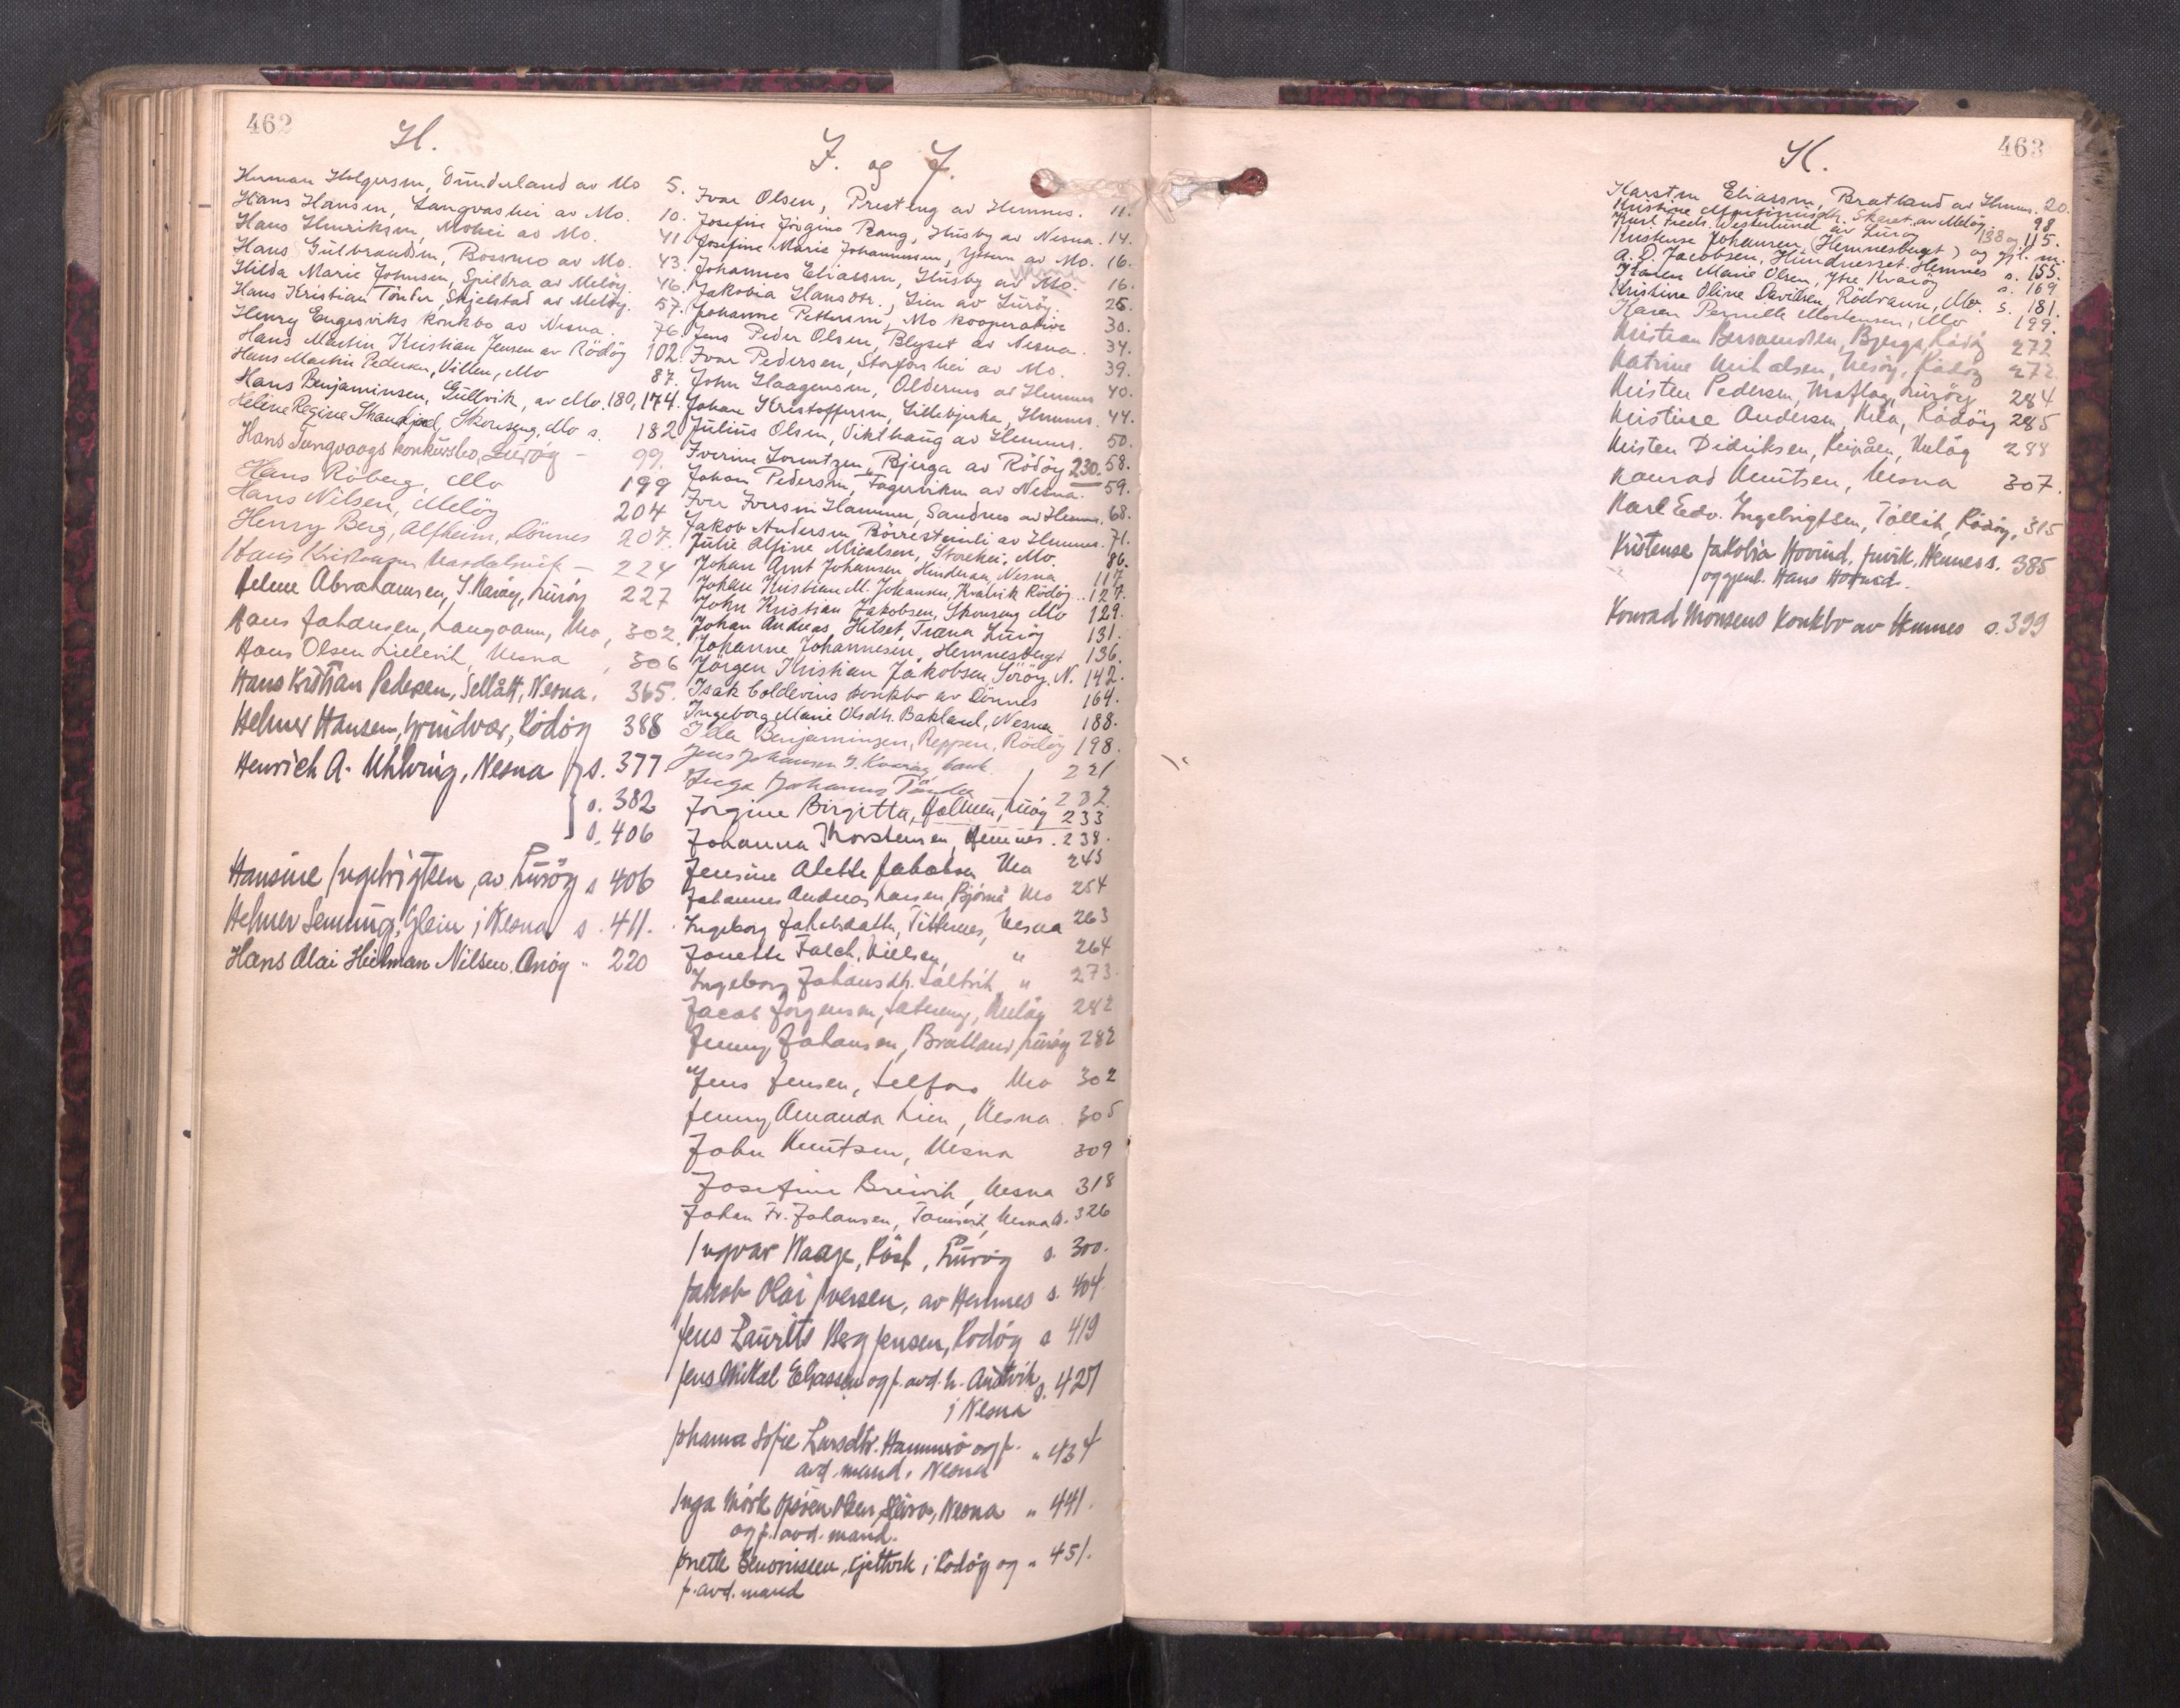 462
H.
Herman Holgersen, Dunderland av Mo 5.
Hans Hansen, Langvashei av Mo. 10.
Hans Henriksen, Mohei av Mo. 41
Hans Gulbrandsen, Bossmo av Mo. 43.
Hilda Marie Johnsen, Spildra av Melöy. 46.
Hans Kristian Tönder, Skjelstad av Melöy. 57.
Henry Engesviks konkbo av Nesna. 76.
Hans Martin Kristian Jensen av Rödöy 102.
Hans Martin Pedersen, Villen, Mo 87.
Hans Benjaminsen, Gullvik, av Mo. 180, 174.
Heline Regine Skonseng, Mo s. 182
Hans Tungvaags konkursbo, Luröy - 99.
Hans Röberg, Mo 199
Hans Nilsen, Melöy 204
Henry Berg, Alfheim, Dönnes 207.
Hans Kristian - 224
Helene Abrahamsen, S. Kvaröy, Luröy 227
Hans Johansen, Langvann, Mo, 302.
Hans Olsen Lillevik, Nesna, 306
Hans Kristian Pedersen, Sellått, Nesna. 365.
Helmer Hansen, Grindvær, Rödöy 388
Henrich A. Uhlving, Nesna s. 377
s. 382
s. 406
Hansine Ingebrigtsen, av Luröy s 406
Helmer Senning, Glein i Nesna s. 411.
Hans Olai Hielman Nilsen. Onöy " 220
I. og J.
Ivar Olsen, Presteng av Hemnes. 11.
Josefine Jörgine Rang, Husby av Nesna. 14.
Josefine Marie Johannessen, Yttern av Mo. 16.
Johannes Eliassen, Husby av Mo. 16.
Jakobia Hansdtr., Lien av Luröy. 25.
Johanne Pettersen, Mo kooperative 30.
Jens Peder Olsen, Blyset av Nesna. 34.
Ivar Pedersen, Storforshei av Mo. 39.
John Haagensen, Oldernes av Hemnes 40.
Johan Kristoffersen, Lillebjerka, Hemnes. 44.
Julius Olsen, Vikthaug av Hemnes. 50.
Iverine Lorentzen, Bjerga av Rödöy 230. 58.
Johan Pedersen, Fagerviken av Nesna. 59.
Iver Iversen Hammen, Sandnes av Hemnes. 68.
Jakob Andersen Börrestemli av Hemnes. 71.
Julie Alfine Micalsen, Storehei, Mo. 86.
Johan Arnt Johansen Hinderaa, Nesna 117
Johan Kristian M. Johansen, Kvalvik Rödöy.. 127.
John Kristian Jakobsen, Skonseng Mo 129.
Johan Andreas Hilset, Træna Luröy 131.
Johanne Johannesen, Hemnesberget 136.
Jörgen Kristian Jakobsen, Söröy. N. 142.
Isak Coldevins konkbo av Dönnes 164.
Ingeborg Marie Olsdtr. Bakland, Nesna 188.
Ida Benjaminsen, Reppen, Rödöy 198.
Jens Johansen S. Kvaröy, 221
Inga Johanne Tönder 232.
Jörgine Birgitta, Holmen, Luröy 233
Johanna Thorstensen, Hemnes. 238.
Jensine Alette Jakobsen Mo 245
Johannes Andreas Larsen, Bjørnå Mo 254
Ingeborg Jakobsdatter, Vittenes, Nesna 263
Jonette Falch, Nielsen, " 264
Ingeborg Johansdtr. Laltvik " 273.
Jacob Jörgensen, Melöy 282
Jenny Johansen, Bratland, Luröy 282
Jens Jensen, Selfors Mo 302
Jenny Amanda Lien, Nesna. 305
John Knutsen, Nesna 309
Josefine Breivik, Nesna 318
Johan Fr. Johansen, Nesna s. 326
Ingvar Waage, Röst, Luröy s. 300.
Jakob Olai Iversen, av Hemnes s. 404.
Jens Laurits Berg Jensen, Rödöy s 419
Jens Mikal Eliassen og f. avd. h. Austvik s. 427
i Nesna
Johanna Sofie Larsdtr. Hammerö og f. " 434
avd. mand. Nesna
Inga Mörk Olsen, Nesna " 441.
og f. avd. mand.
Jonette i Rödöy og " 451.
f. avd. mand
463
K.
Karsten Eliassen, Bratland av Hemnes. 20.
Kristine Skaret av Melöy. 98.
Karl Fredr. Westerlund av Luröy 138 og 115.
Kristense Johansen (Hemnesberget) og gjl. m.
A. P. Jacobsen, Hundnesset Hemnes s. 155.
Karen Marie Olsen, Ytre Kvaröy s. 169.
Kristine Oline Davidsen, Rödvann, Mo. s. 181.
Karen Pernelle Mortensen, Mo 199.
Kristian Bersvendsen, Bjerga, Rödöy 272
Katrine Mikalsen, Nesöy, Rödöy 272.
Kristen Pedersen, Luröy 284
Kristine Andersen, Kila, Rödöy 285
Kristen Didriksen, Reipåen, Melöy 288
Konrad Knutsen, Nesna 307.
Karl Edv. Ingebrigtsen, Rödöy, 315
Kristense Jakobia Hovind. Juvik. Hemnes s. 385
og gjenl. Hans Hovind.
Konrad Monsens konkbo av Hemnes s. 399